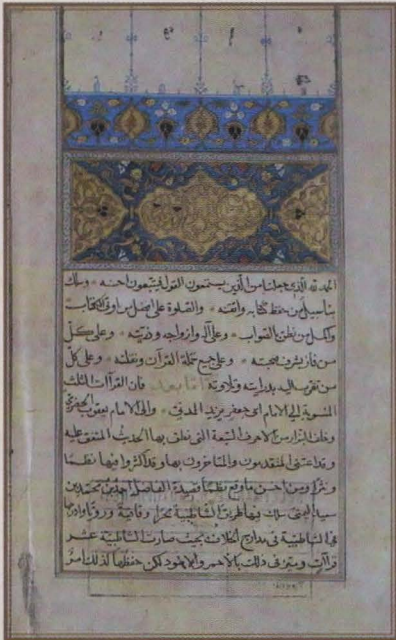 الحمد لله الذي جعلنا من الذين يستمعون القول فيتبعون احسنه وسلك
بنا سبيل من حفظ كتابه واتقنه والصلوة على افضل من اوتي الكتاب
واكمل من نطق بالصواب وعلى آله وازواجه وذريته وعلى كل
من فاز بشرف صحبته وعلى جميع حملة القرآن ونقلته وعلى كل
من تقرب اليه بدرايته وتلاوته اما بعد فان القراآت الثلث
المنسوبة الى الامام ابى جعفر يزيد المدني والى الامام يعقوب الحضرمي
وخلف البزار من الاحرف السبعة التى نطق بها الحديث المتفق عليه
وقد اعتنى المتقدمون والمتاخرون بها وقد اكثروا فيها نظما
ونثرا ومن احسن ما وقع نظما قصيدة الفاضل احمد بن محمد بن
سعيد اليمنى سلك فيها طريق الشاطبية بحرا وقافية ورويا وادرجها
فى الشاطبية فى مدارج الخلاف بحيث صارت الشاطبية عشر
قراآت وميز فى ذلك بالاحمر والاسود لكن حفظها لذلك امر